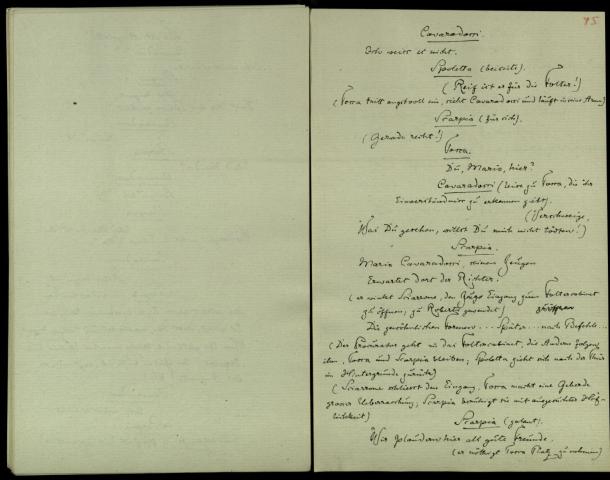 95
Cavaradossi.
Ich weiss es nicht.
Spoletta (beiseite).
(Reif ist er für die Folter!)
(Tosca tritt angstvoll ein, sieht Cavaradossi und läuft in seine Arme)
Scarpia (für sich).
(Gerade recht!)
Tosca.
Du, Mario, hier?
Cavaradossi (leise zu Tosca, die ihr
Einverständniss zu erkennen giebt).
(Verschweige,
Was Du gesehen, willst Du mich nicht tödten!)
Scarpia.
Mario Cavaradossi, seinen Zeugen
Erwartet dort der Richter.
(er winkt Sciarrone, den Eingang zum Foltercabinet
zu öffnen, zu Roberti gewendet)
Die gewöhnlichen Formen ... Später ... nach Befehle ..
(Der Procurator geht in das Foltercabinet, die Andern folgen
ihm, Tosca und Scarpia bleiben, Spoletta zieht sich nach der Thür
im Hintergrunde zurück)
(Sciarrone schliesst den Eingang, Tosca macht eine Geberde
grosser Ueberraschung, Scarpia beruhigt sie mit ausgesuchter Höf-
lichkeit)
Scarpia (galant).
Wir plaudern hier als gute Freunde.
(er nöthigt Tosca Platz zu nehmen)